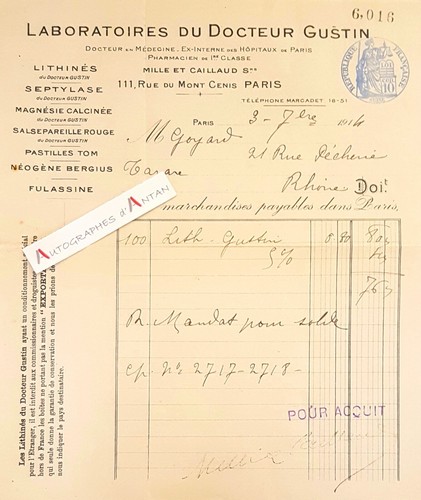 6,016
LABORATOIRES DU DOCTEUR GUSTIN
DOCTEUR EN MÉDECINE, EX-INTERNE DES HÔPITAUX DE PARIS
PHARMACIEN DE 1re CLASSE
MILLE ET CAILLAUD Srs
111, RUE DU MONT CENIS PARIS
TÉLÉPHONE MARCADET 18-51
RÉPUBLIQUE FRANÇAISE
10
LITHINÉS
DU DOCTEUR GUSTIN
SEPTYLASE
DU DOCTEUR GUSTIN
MAGNÉSIE CALCINÉE
DU DOCTEUR GUSTIN
SALSEPAREILLE ROUGE
DU DOCTEUR GUSTIN
PASTILLES TOM
NÉOGÈNE BERGIUS
FULASSINE
PARIS 3 - 7bre 1914
M Goyard
21 Rue Pêcherie
Tarare
Rhône Doit
marchandises payables dans Paris.
100 Lith. Gustin 0.80 80
5%
76
R. Mandat pour solde
cp. Nos 2717-2718-
POUR ACQUIT
AUTOGRAPHES d'ANTAN
Les Lithinés du Docteur Gustin ayant un conditionnement spécial
pour l'Etranger, il est interdit aux commissionnaires et droguistes
hors de France les boîtes ne portant pas la mention "EXPORTA
qui seule donne la garantie de conservation et nous les prions de
nous indiquer le pays destinataire.